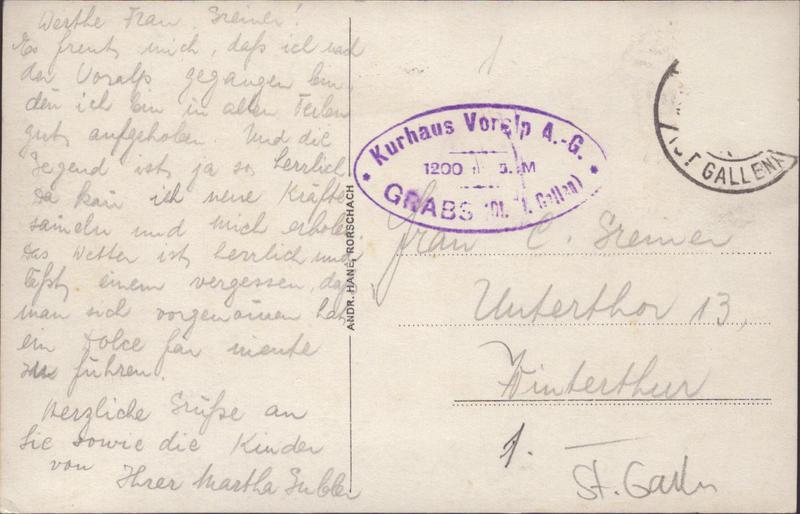 Werthe Frau Greiner!
Es freut mich, daß ich nach
der Voralp gegangen bin,
den ich bin in allen Teilen
gut aufgehoben. Und die
Gegend ist ja so herrlich
Da kan̄ ich neue Kräfte
sam̄eln und mich erholen
Das Wetter ist herrlich und
läßt einem vergessen, daß
man sich vorgenom̄en hat
ein Dolce far niente
zu führen.
Herzliche Grüße an
Sie sowie die Kinder
von
Ihrer Martha
ANDR. HANE, RORSCHACH
1
Kurhaus Voralp A.-G.
1200 M
GRABS (Kt. St. Gallen)
(ST GALLEN)
Frau C. Greiner
Unterthor 13,
Winterthur
1.
St. Gallen